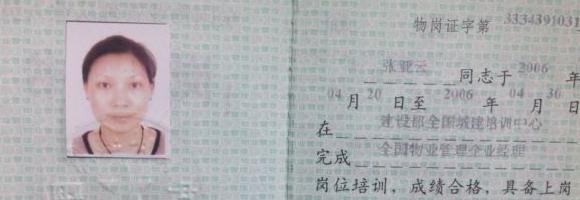 物岗证字第 3334391031
张亚云 同志于 2006 年
04 月 20 日至 2006 年 04 月 30 日
在 建设部全国城建培训中心
完成 全国物业管理企业经理
岗位培训，成绩合格，具备上岗